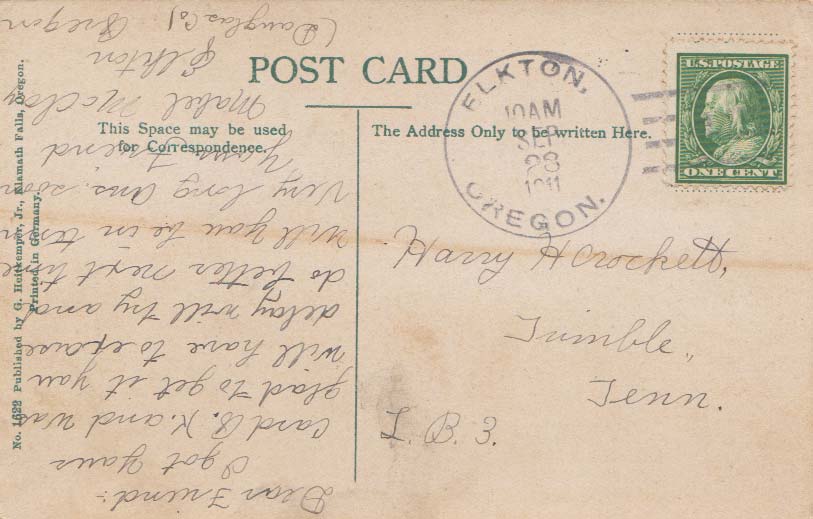 POST CARD
This Space may be used
for Correspondence.
The Address Only to be written Here.
No. 1622 Published by G. Heitkemper, Jr., Klamath Falls, Oregon.
Printed in Germany.
ELKTON,
10AM
SEP
28
1911
OREGON.
U.S. POSTAGE
ONE CENT
Harry H Crockett,
Trimble,
Tenn.
L. B. 3.
Dear Friend:-
I got your
card O. K. and was
glad to get it you
will have to
delay will try and
do better next time
will you be in town
very long Ans. soon
Your Friend
Mabel McClay
Elkton
(Douglas Co) Oregon